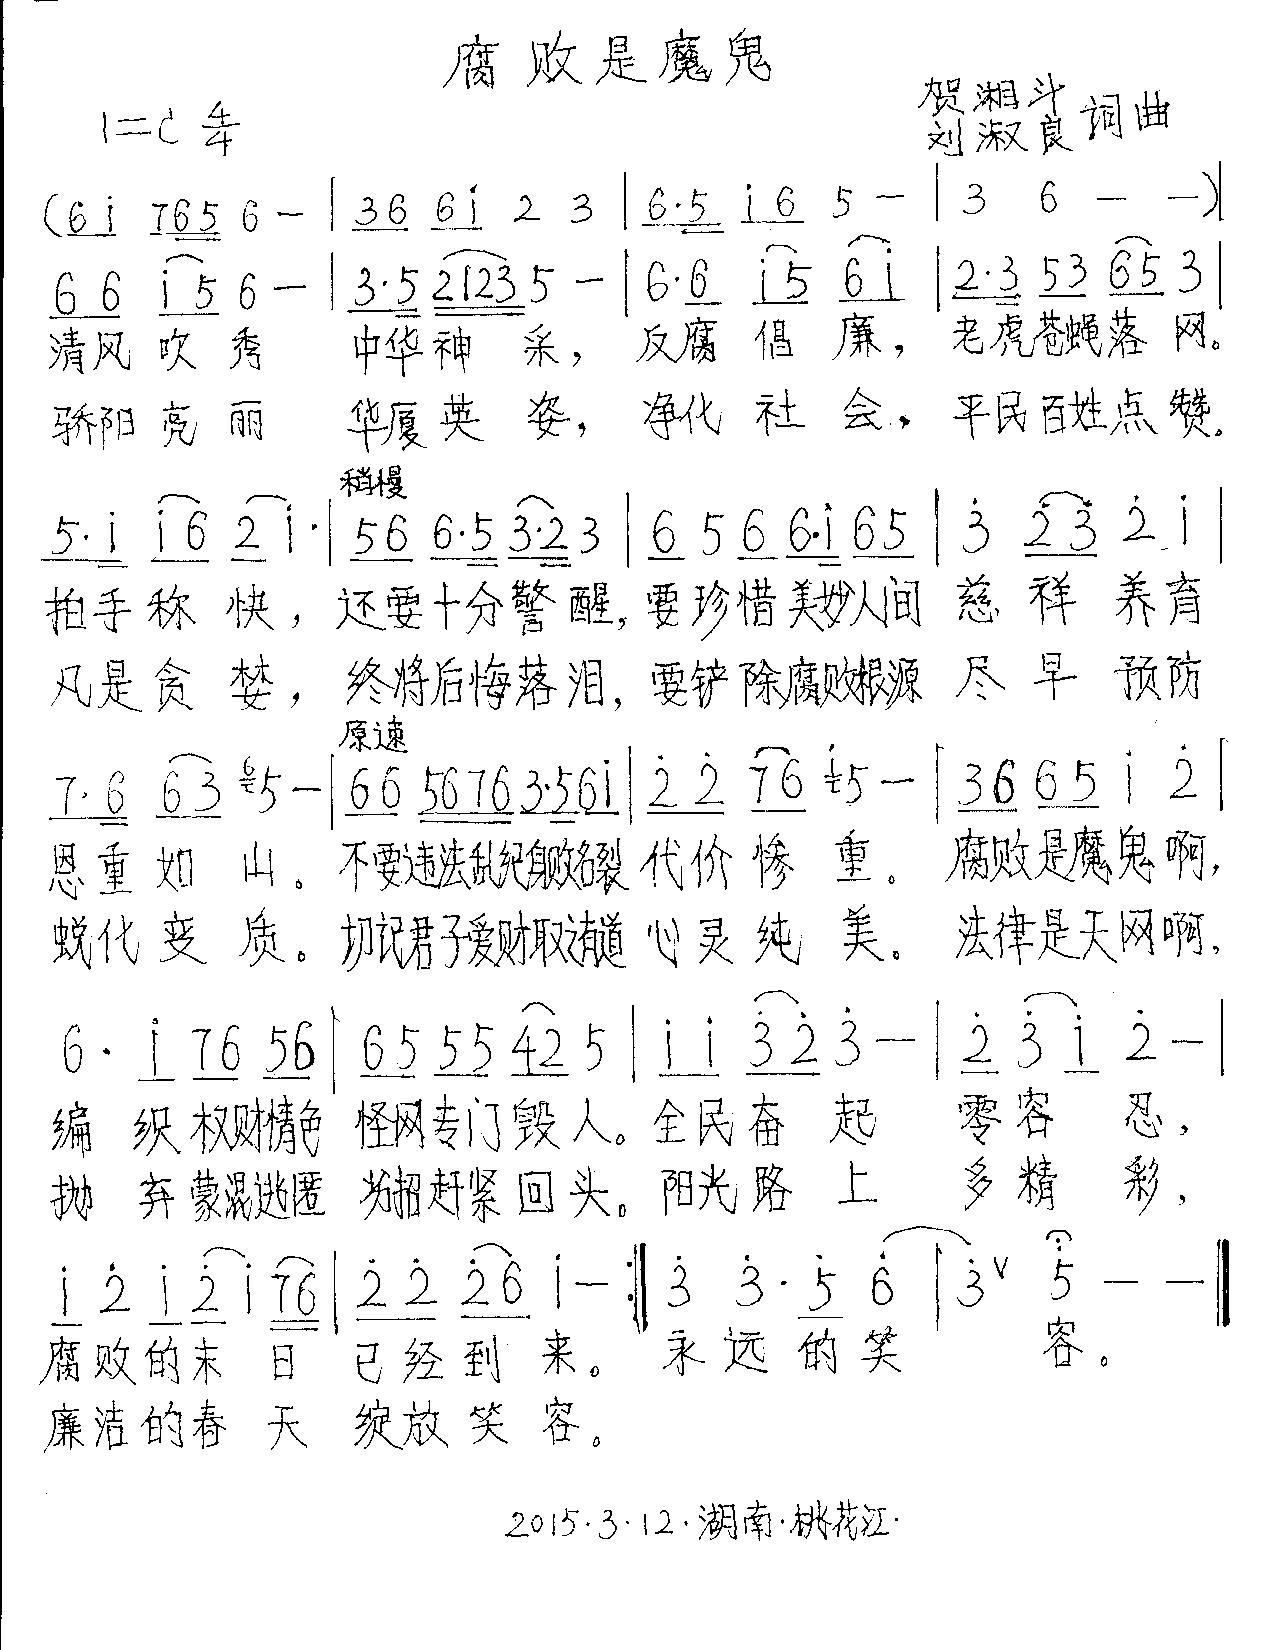 腐败是魔鬼
1=C 4/4
贺湘斗
刘淑良 词曲
(6 i 7 6 5 6 - | 3 6 6 i 2 3 | 6·5 i 6 5 - | 3 6 - - )|
6 6 i 5 6 - | 3·5 2 1 2 3 5 - | 6·6 i 5 6 i | 2·3 5 3 6 5 3 |
清风吹秀 中华神采，反腐倡廉，老虎苍蝇落网。
骄阳亮丽 华厦英姿，净化社会，平民百姓点赞。
稍慢
5·i i 6 2 i· | 5 6 6·5 3·2 3 | 6 5 6 6·i 6 5 | 3̇ 2̇ 3̇ 2̇ i |
拍手称快，还要十分警醒，要珍惜美妙人间 慈祥养育
凡是贪婪，终将后悔落泪，要铲除腐败根源 尽早预防
原速
7·6 6 3 6 5 - | 6 6 5 6 7 6 3·5 6 i | 2̇ 2̇ 7 6 i 5 - | 3 6 6 5 i 2̇ |
恩重如山。不要违法乱纪身败名裂 代价惨重。腐败是魔鬼啊，
蜕化变质。切记君子爱财取之有道 心灵纯美。法律是天网啊，
6· i 7 6 5 6 | 6 5 5 5 4 2 5 | i i 3̇ 2̇ 3̇ - | 2̇ 3̇ i 2̇ - |
编织权财情色 怪网专门毁人。全民奋起 零容忍，
抛弃蒙混逃匿 招赶紧回头。阳光路上 多精彩，
i 2̇ i 2̇ i 7 6 | 2̇ 2̇ 2̇ 6 i - :‖ 3̇ 3̇· 5̇ 6̇ | 3̇ ∨ 5̇ - - ‖
腐败的末日 已经到来。永远的笑 容。
廉洁的春天 绽放笑容。
2015·3·12·湖南·桃花江·